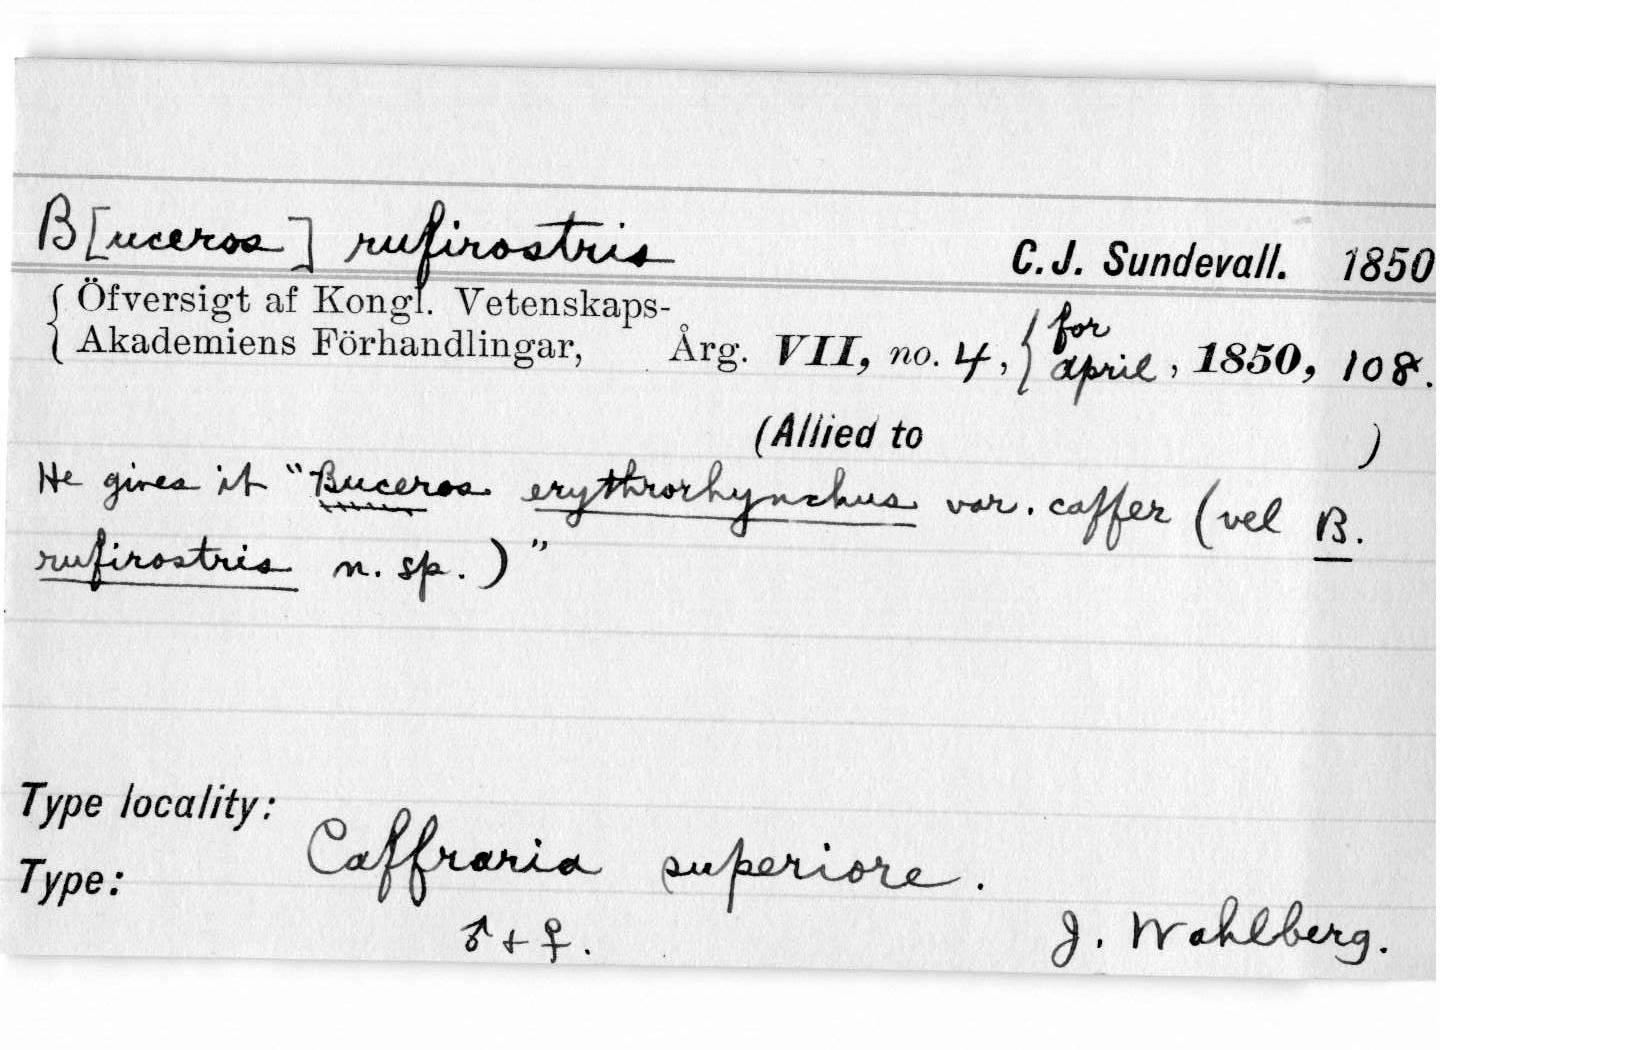 B[uceros] rufirostris C. J. Sundevall. 1850
{ Öfversigt af Kongl. Vetenskaps-
Akademiens Förhandlingar, Årg. VII, no. 4, { for april, 1850, 108.
(Allied to )
He gives it "Buceros erythrorhynchus var. caffer (vel B.
rufirostris n. sp.)"
Type locality:
Caffraria superiore.
Type:
♂ + ♀. J. Wahlberg.